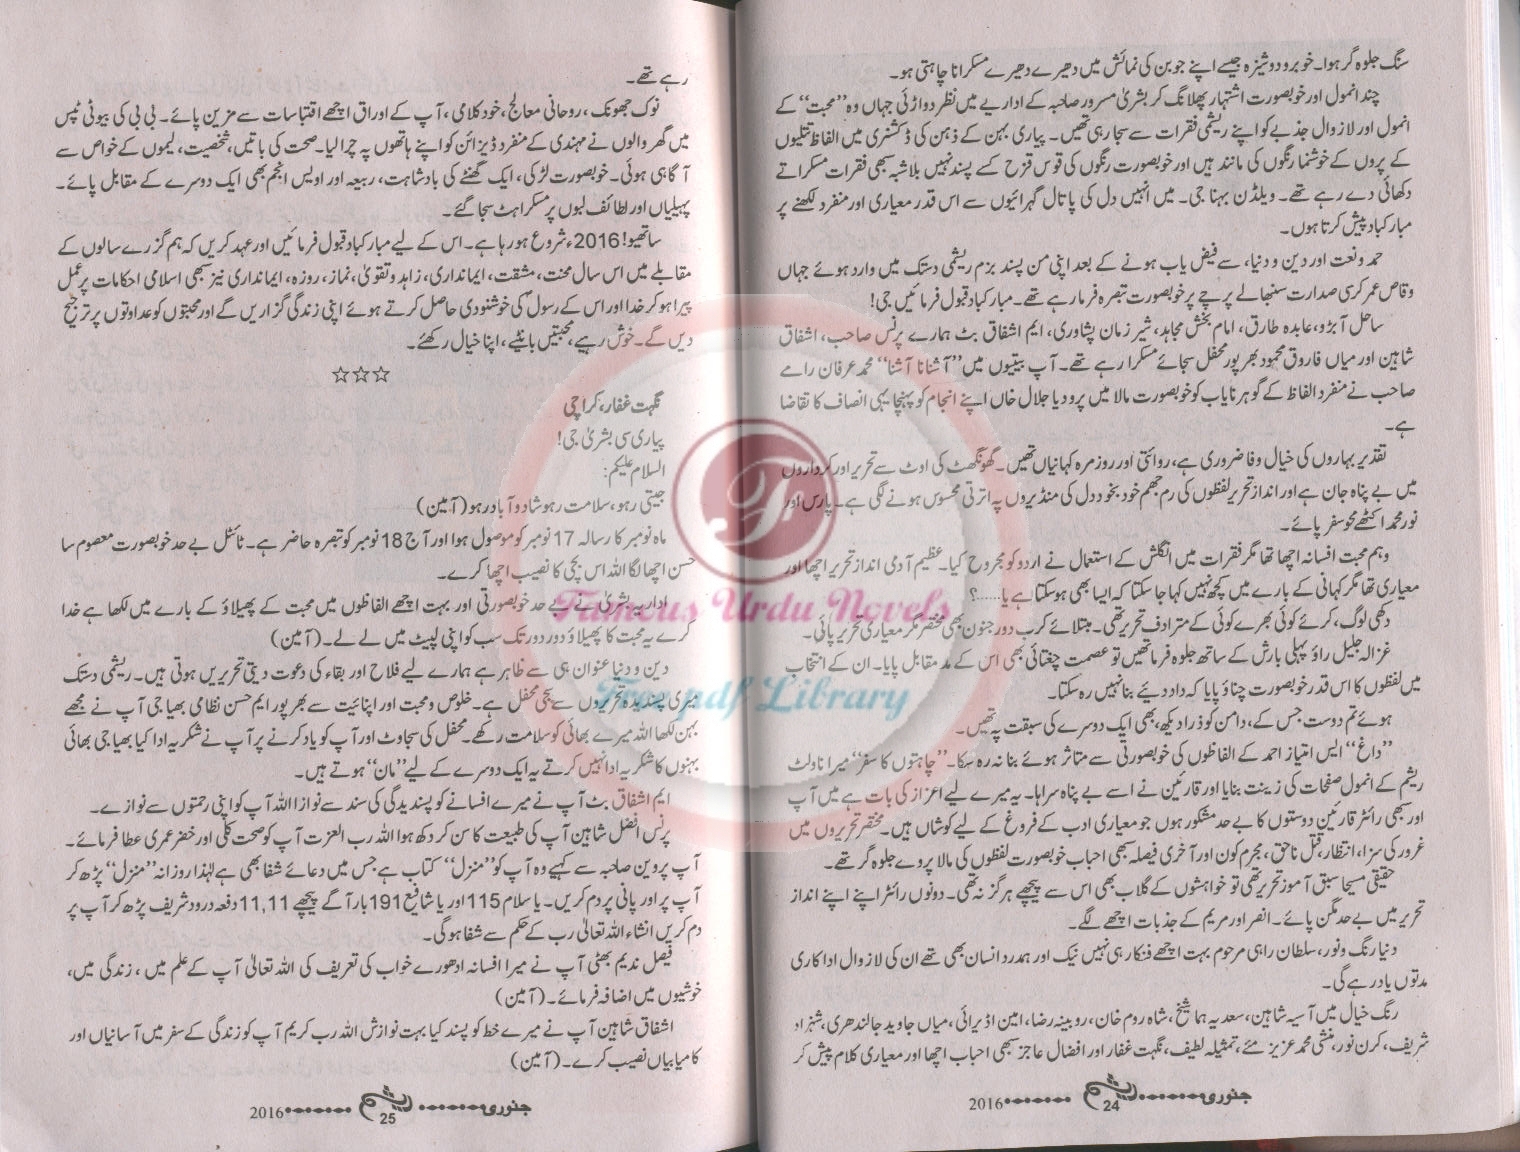 سنگ جلوہ گر ہوا۔ خوبرو دوشیزہ جیسے اپنے جوبن کی نمائش میں دھیرے دھیرے مسکرانا چاہتی ہو۔
چند انمول اور خوبصورت اشتہار پھلانگ کر بشریٰ مسرور صاحبہ کے اداریے میں نظر دوڑائی جہاں وہ ''محبت'' کے
انمول اور لازوال جذبے کو اپنے ریشمی فقرات سے سجا رہی تھیں۔ پیاری بہن کے ذہن کی ڈکشنری میں الفاظ تتلیوں
کے پروں کے خوشنما رنگوں کی مانند ہیں اور خوبصورت رنگوں کی قوس قزح کسے پسند نہیں بلاشبہ سبھی فقرات مسکراتے
دکھائی دے رہے تھے۔ ویلڈن بہنا جی۔ میں انہیں دل کی پاتال گہرائیوں سے اس قدر معیاری اور منفرد لکھنے پر
مبارکباد پیش کرتا ہوں۔
حمد و نعت اور دین و دنیا، سے فیض یاب ہونے کے بعد اپنی من پسند بزم ریشمی دستک میں وارد ہوئے جہاں
وقاص عمر کرسی صدارت سنبھالے پرچے پر خوبصورت تبصرہ فرما رہے تھے۔ مبارکباد قبول فرمائیں جی!
ساحل ابڑو، عابدہ طارق، امام بخش مجاہد، شیر زمان پشاوری، ایم اشفاق بٹ ہمارے پرنس صاحب، اشفاق
شاہین اور میاں فاروق محمود بھرپور محفل سجائے مسکرا رہے تھے۔ آپ بیتیوں میں ''آشنا نا آشنا'' محمد عرفان رامے
صاحب نے منفرد الفاظ کے گوہر نایاب کو خوبصورت مالا میں پرو دیا جلال خاں اپنے انجام کو پہنچا یہی انصاف کا تقاضا
ہے۔
تقدیر بہاروں کی خیال وفا ضروری ہے، روائتی اور روزمرہ کہانیاں تھیں۔ گھونگھٹ کی اوٹ سے تحریر اور کرداروں
میں بے پناہ جان ہے اور انداز تحریر لفظوں کی رم جھم خود بخود دل کی منڈیروں پہ اترتی محسوس ہونے لگی ہے۔ پارس اور
نور محمد اکٹھے محو سفر پائے۔
وہم محبت افسانہ اچھا تھا مگر فقرات میں انگلش کے استعمال نے اردو کو مجروح کیا۔ عظیم آدمی انداز تحریر اچھا اور
معیاری تھا مگر کہانی کے بارے میں کچھ نہیں کہا جا سکتا کہ ایسا بھی ہو سکتا ہے یا......؟
دکھی لوگ، کرے کوئی بھرے کوئی کے مترادف تحریر تھی۔ مبتلائے کرب دور جنون بھی مختصر مگر معیاری تحریر پائی۔
غزالہ جلیل راؤ پہلی بارش کے ساتھ جلوہ فرما تھیں تو عصمت چغتائی بھی اس کے مدمقابل پایا۔ ان کے انتخاب
میں لفظوں کا اس قدر خوبصورت چناؤ پایا کہ داد دیئے بنا نہیں رہ سکتا۔
ہوئے تم دوست جس کے، دامن کو ذرا دیکھ، بھی ایک دوسرے کی سبقت پہ تھیں۔
''داغ'' ایس امتیاز احمد کے الفاظوں کی خوبصورتی سے متاثر ہوئے بنا نہ رہ سکا۔ ''چاہتوں کا سفر'' میرا ناولٹ
ریشم کے انمول صفحات کی زینت بنایا اور قارئین نے اسے بے پناہ سراہا۔ یہ میرے لیے اعزاز کی بات ہے میں آپ
اور سبھی رائٹر قارئین دوستوں کا بے حد مشکور ہوں جو معیاری ادب کے فروغ کے لیے کوشاں ہیں۔ مختصر تحریروں میں
غرور کی سزا، انتظار، قتل ناحق، مجرم کون اور آخری فیصلہ سبھی احباب خوبصورت لفظوں کی مالا پروے جلوہ گر تھے۔
حقیقی مسیحا سبق آموز تحریر تھی تو خواہشوں کے گلاب بھی اس سے پیچھے ہرگز نہ تھی۔ دونوں رائٹر اپنے اپنے انداز
تحریر میں بے حد مگن پائے۔ انصر اور مریم کے جذبات اچھے لگے۔
دنیا رنگ و نور، سلطان راہی مرحوم بہت اچھے فنکار ہی نہیں نیک اور ہمدرد انسان بھی تھے ان کی لازوال اداکاری
مدتوں یاد رہے گی۔
رنگ خیال میں آسیہ شاہین، سعدیہ ہما شیخ، شاہ روم خان، روبینہ رضا، امین اڈیرائی، میاں جاوید جالندھری، شہزاد
شریف، کرن نور، منشی محمد عزیز مئے، تمثیلہ لطیف، نگہت غفار اور افضال عاجز سبھی احباب اچھا اور معیاری کلام پیش کر
جنوری ریشم 24 2016
رہے تھے۔
نوک جھونک، روحانی معالج، خود کلامی، آپ کے اوراق اچھے اقتباسات سے مزین پائے۔ بی بی کی بیوٹی ٹپس
میں گھر والوں نے مہندی کے منفرد ڈیزائن کو اپنے ہاتھوں پہ چرا لیا۔ صحت کی باتیں، شخصیت، لیموں کے خواص سے
آگاہی ہوئی۔ خوبصورت لڑکی، ایک گھنٹے کی بادشاہت، ربیعہ اور اویس انجم بھی ایک دوسرے کے مقابل پائے۔
پہیلیاں اور لطائف لبوں پر مسکراہٹ سجا گئے۔
ساتھیو! 2016ء شروع ہو رہا ہے۔ اس کے لیے مبارکباد قبول فرمائیں اور عہد کریں کہ ہم گزرے سالوں کے
مقابلے میں اس سال محنت، مشقت، ایمانداری، زاہد و تقویٰ، نماز، روزہ، ایمانداری نیز سبھی اسلامی احکامات پر عمل
پیرا ہو کر خدا اور اس کے رسولؐ کی خوشنودی حاصل کرتے ہوئے اپنی زندگی گزاریں گے اور محبتوں کو عداوتوں پر ترجیح
دیں گے۔ خوش رہیے، محبتیں بانٹیے، اپنا خیال رکھئے۔
☆☆☆
نگہت غفار، کراچی
پیاری سی بشریٰ جی!
السلام علیکم:
جیتی رہو، سلامت رہو شاد و آباد رہو (آمین)
ماہ نومبر کا رسالہ 17 نومبر کو موصول ہوا اور آج 18 نومبر کو تبصرہ حاضر ہے۔ ٹائٹل بے حد خوبصورت معصوم سا
حسن اچھا لگا اللہ اس بچی کا نصیب اچھا کرے۔
اداریہ بشریٰ نے بے حد خوبصورتی اور بہت اچھے الفاظوں میں محبت کے پھیلاؤ کے بارے میں لکھا ہے خدا
کرے یہ محبت کا پھیلاؤ دور دور تک سب کو اپنی لپیٹ میں لے لے۔ (آمین)
دین و دنیا عنوان ہی سے ظاہر ہے ہمارے لیے فلاح اور بقاء کی دعوت دیتی تحریریں ہوتی ہیں۔ ریشمی دستک
میری پسندیدہ تحریروں سے سجی محفل ہے۔ خلوص و محبت اور اپنائیت سے بھرپور ایم حسن نظامی بھیا جی آپ نے مجھے
بہن لکھا اللہ میرے بھائی کو سلامت رکھے۔ محفل کی سجاوٹ اور آپ کو یاد کرنے پر آپ نے شکریہ ادا کیا بھیا جی بھائی
بہنوں کا شکریہ ادا نہیں کرتے یہ ایک دوسرے کے لیے ''مان'' ہوتے ہیں۔
ایم اشفاق بٹ آپ نے میرے افسانے کو پسندیدگی کی سند سے نوازا اللہ آپ کو اپنی رحمتوں سے نوازے۔
پرنس افضل شاہین آپ کی طبیعت کا سن کر دکھ ہوا اللہ رب العزت آپ کو صحت کلی اور خضر عمری عطا فرمائے۔
آپ پروین صاحبہ سے کہیے وہ آپ کو ''منزل'' کتاب ہے جس میں دعائے شفا بھی ہے لہٰذا روزانہ ''منزل'' پڑھ کر
آپ پر اور پانی پر دم کریں۔ یا سلام 115 اور یا شافیع 191 بار آگے پیچھے 11,11 دفعہ درود شریف پڑھ کر آپ پر
دم کریں انشاء اللہ تعالیٰ رب کے حکم سے شفا ہو گی۔
فیصل ندیم بھٹی آپ نے میرا افسانہ ادھورے خواب کی تعریف کی اللہ تعالیٰ آپ کے علم میں، زندگی میں،
خوشیوں میں اضافہ فرمائے۔ (آمین)
اشفاق شاہین آپ نے میرے خط کو پسند کیا بہت نوازش اللہ رب کریم آپ کو زندگی کے سفر میں آسانیاں اور
کامیابیاں نصیب کرے۔ (آمین)
جنوری ریشم 25 2016
Famous Urdu Novels
Free pdf Library